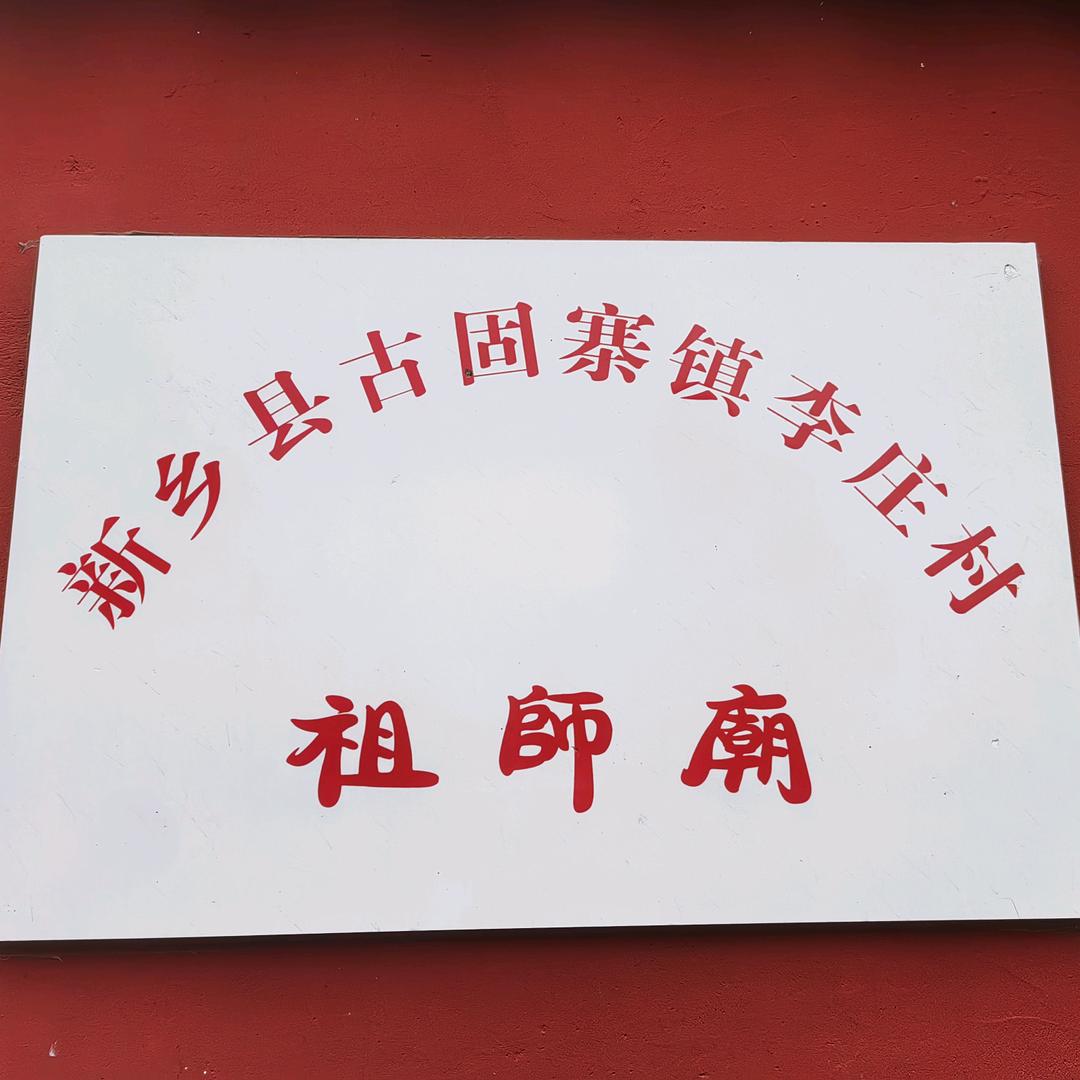 新乡县古固寨镇李庄村
祖師廟